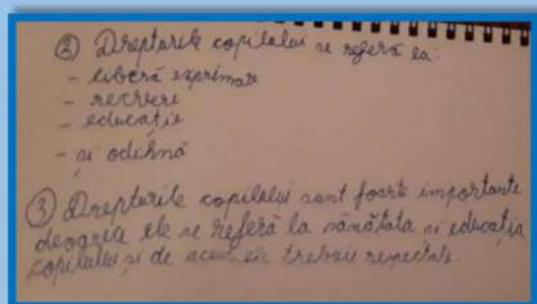 ② Drepturile copilului se referă la:
- liberă exprimare
- recreere
- educație
- și odihnă
③ Drepturile copilului sunt foarte importante
deoarece ele se referă la sănătata și educația
copilului și de aceea trebuie respectate.